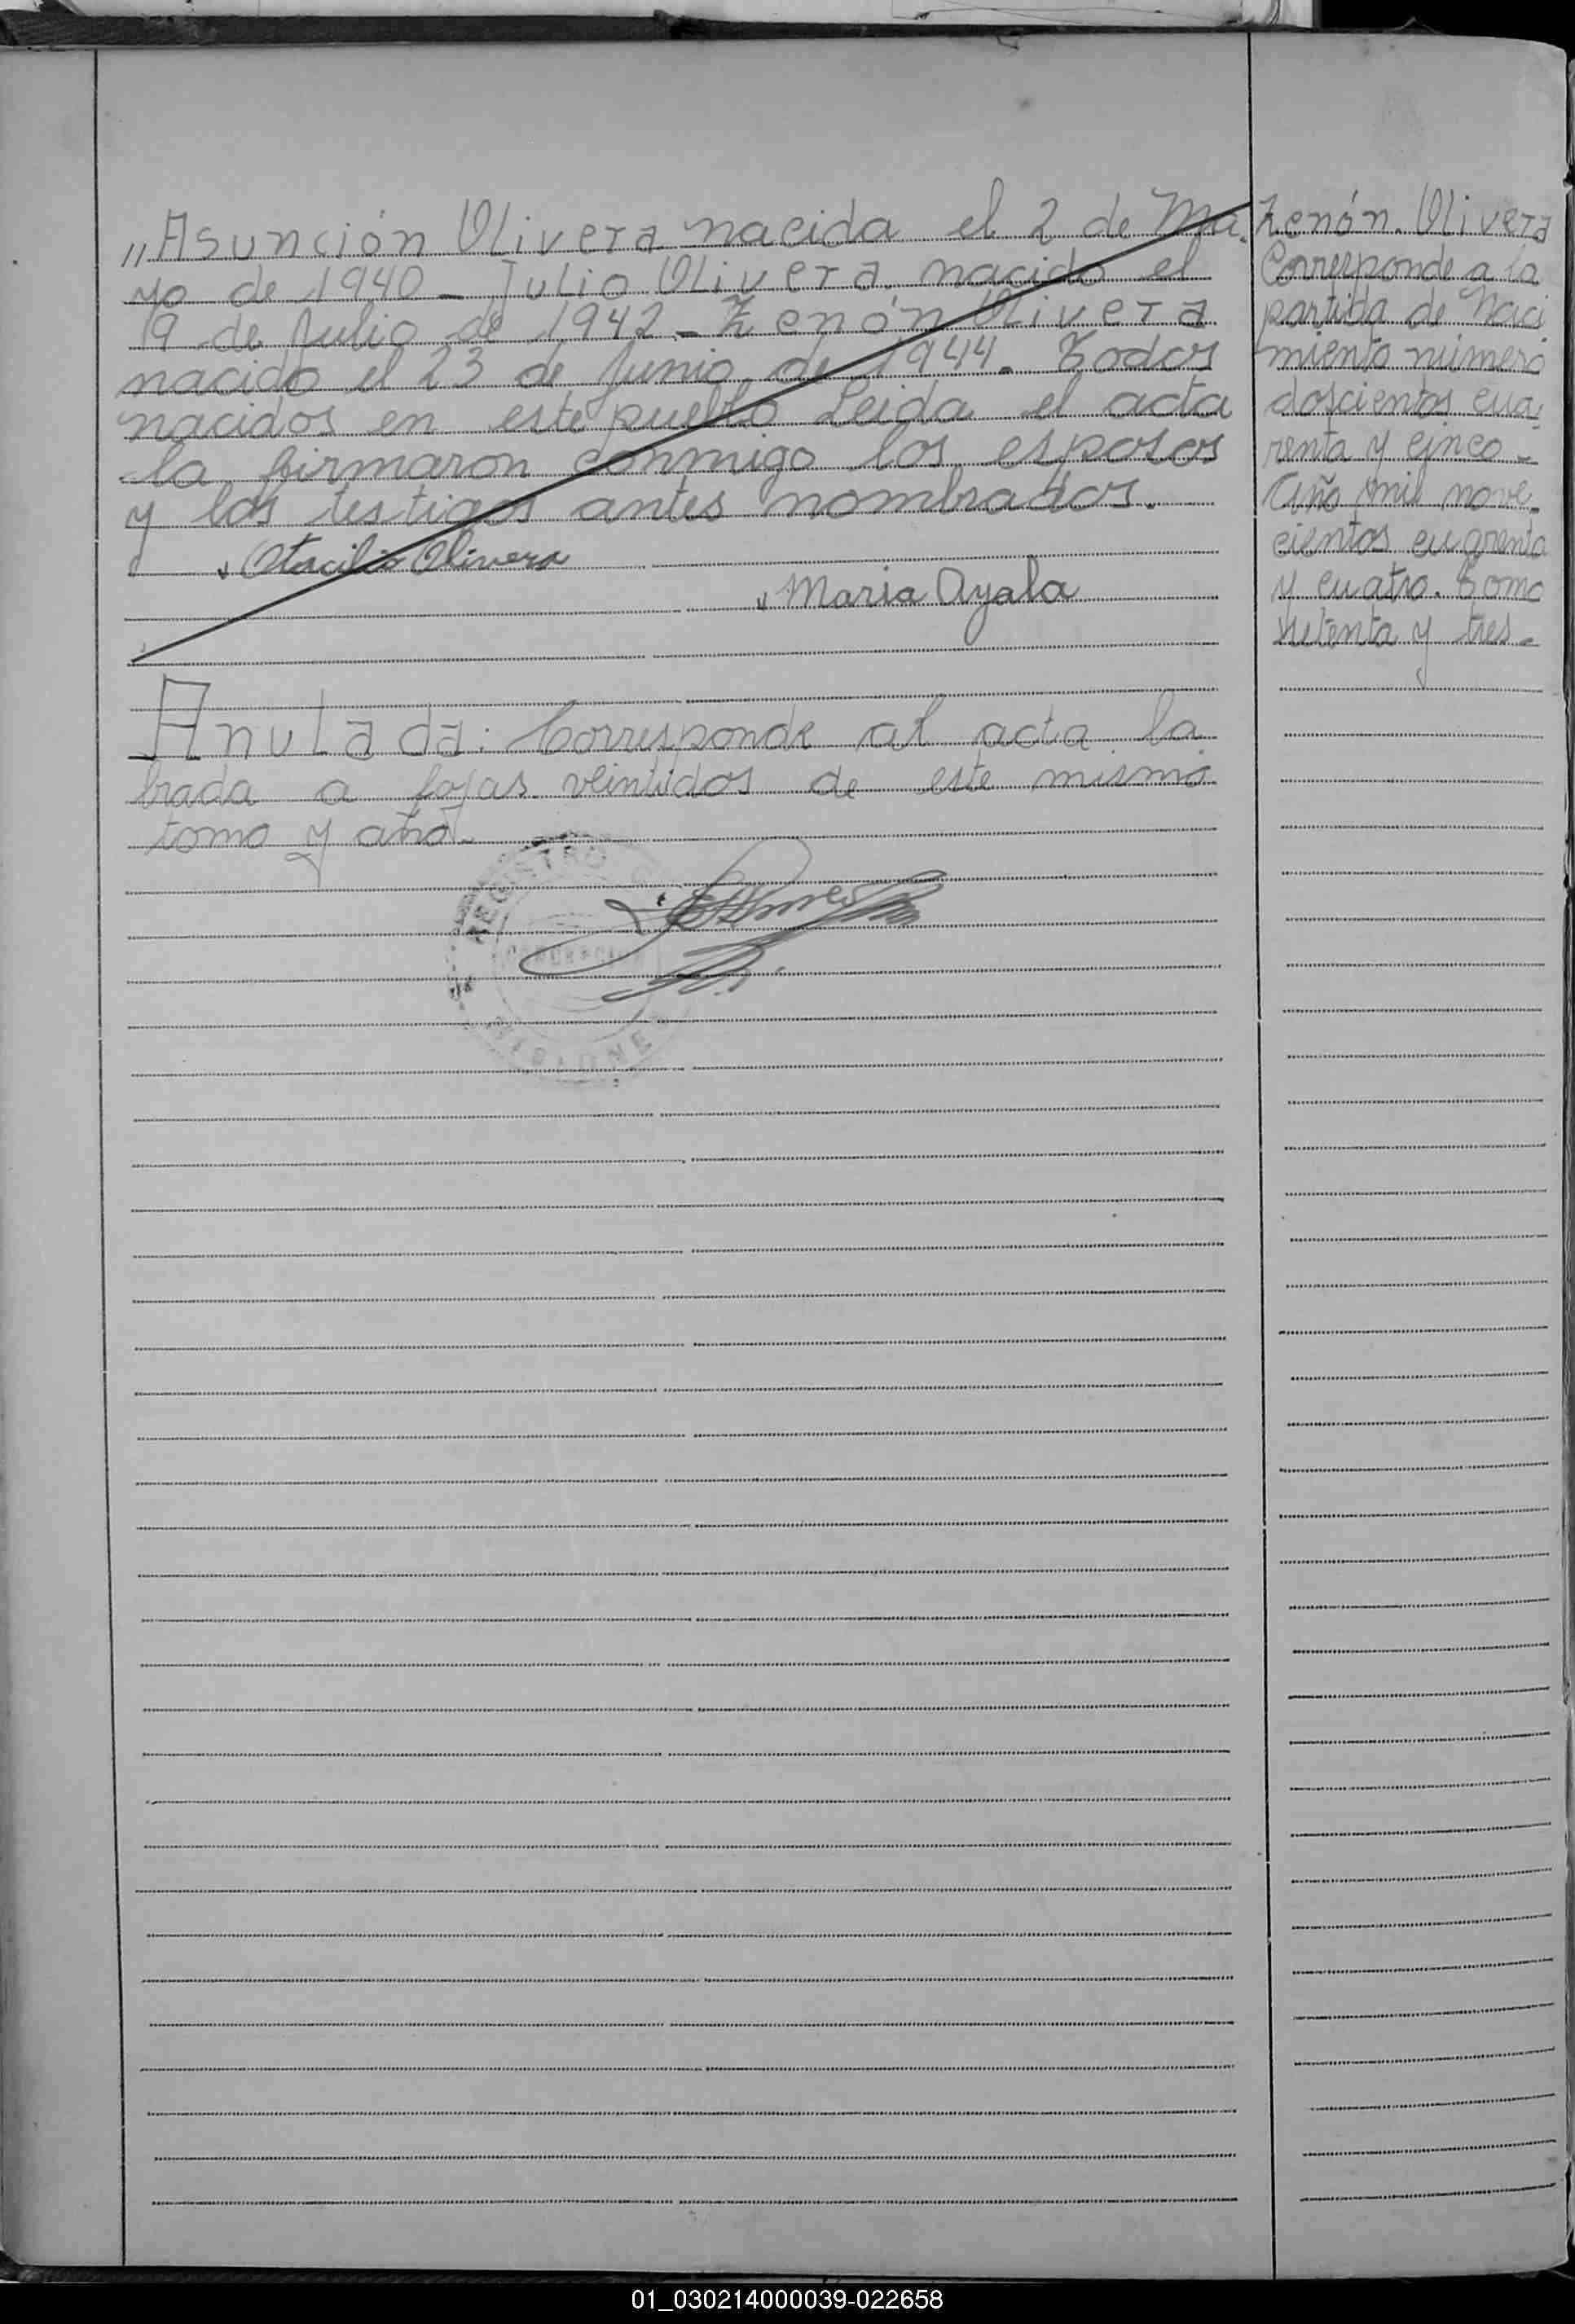 „Asunción Olivera nacida el 2 de Ma-
yo de 1940 - Julio Olivera nacido el
9 de Julio de 1942 - Zenón Olivera
nacido el 23 de Junio de 1944. Todos
nacidos en este pueblo Leida el acta
la firmaron conmigo los esposos
y los testigos antes nombrados.
Otacilio Olivera
Maria Ayala
Anulada: Corresponde al acta la
brada a fojas veintidos de este mismo
tomo y año.-
REGISTRO
MISIONES
Zenón Olivera
Corresponde a la
partida de Naci
miento número
doscientos cua-
renta y cinco -
Año mil nove-
cientos cuarenta
y cuatro. Tomo
setenta y tres -
01_030214000039-022658